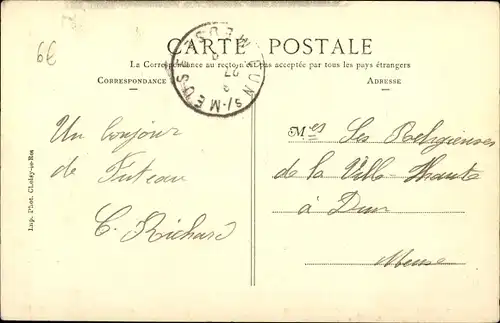 69
CARTE POSTALE
La Correspondance au recto n'est pas acceptée par tous les pays étrangers
CORRESPONDANCE
ADRESSE
DUN S/-MEUSE
MEUSE
Un bonjour
de Futeau
C. Richard
Mes Les Religieuses
de la Ville-Haute
à Dun
Meuse
Imp. Phot. CLoisy-le-Ros